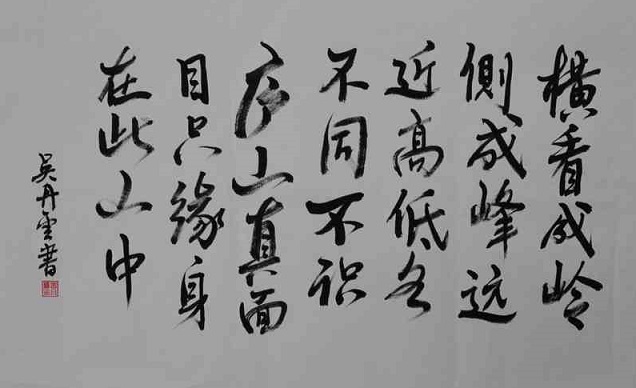 横看成岭
側成峰远
近高低各
不同不识
庐山真面
目只緣身
在此山中
吴丹雲書